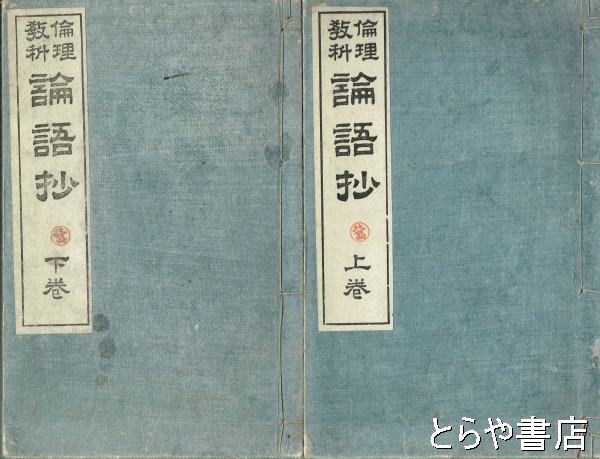 倫理
教科
論語抄
上巻
倫理
教科
論語抄
下巻
とらや書店